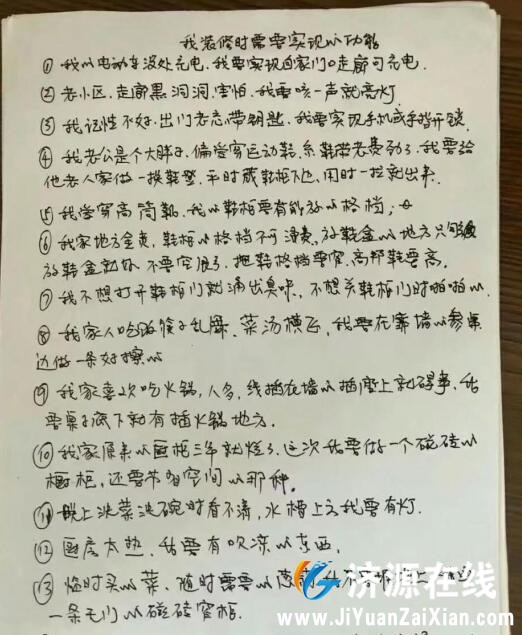 我装修时需要实现以功能
① 我以电动车没处充电，我要实现自家门口走廊可充电.
② 老小区，走廊黑洞洞，害怕，我要咳一声就亮灯
③ 我记性不好，出门老忘带钥匙，我要实现手机或手指开锁.
④ 我老公是个大胖子，偏爱穿运动鞋，系鞋带老费劲了，我要给
他老人家做一换鞋凳，平时藏鞋柜下边，用时一拉就出来.
⑤ 我爱穿高筒靴，我以鞋柜要有能放以格档；
⑥ 我家地方金贵，鞋柜以格档不可浪费，放鞋盒以地方只够
放鞋盒就好 不要空隙了，把鞋格档要窄，高帮鞋要高.
⑦ 我不想打开鞋柜门就涌出臭味，不想关鞋柜门时啪啪以
⑧ 我家人吃路筷子乱，菜汤横飞，我要在靠墙以参桌
边做一条好擦以
⑨ 我家喜欢吃火锅，人多，线插在墙以插座上就碍事，我
要桌子底下就有插火锅地方.
⑩ 我家原来以厨柜三年就烂了，这次我要做一个砼硅以
橱柜，还要节省空间以那种.
⑪ 晚上洗菜洗碗时看不清，水槽上方我要有灯.
⑫ 厨房太热，我要有吹凉以东西.
⑬ 临时买以菜，随时需要以
一条无门以砼硅窄柜.
济源在线
www.JiYuanZaiXian.com